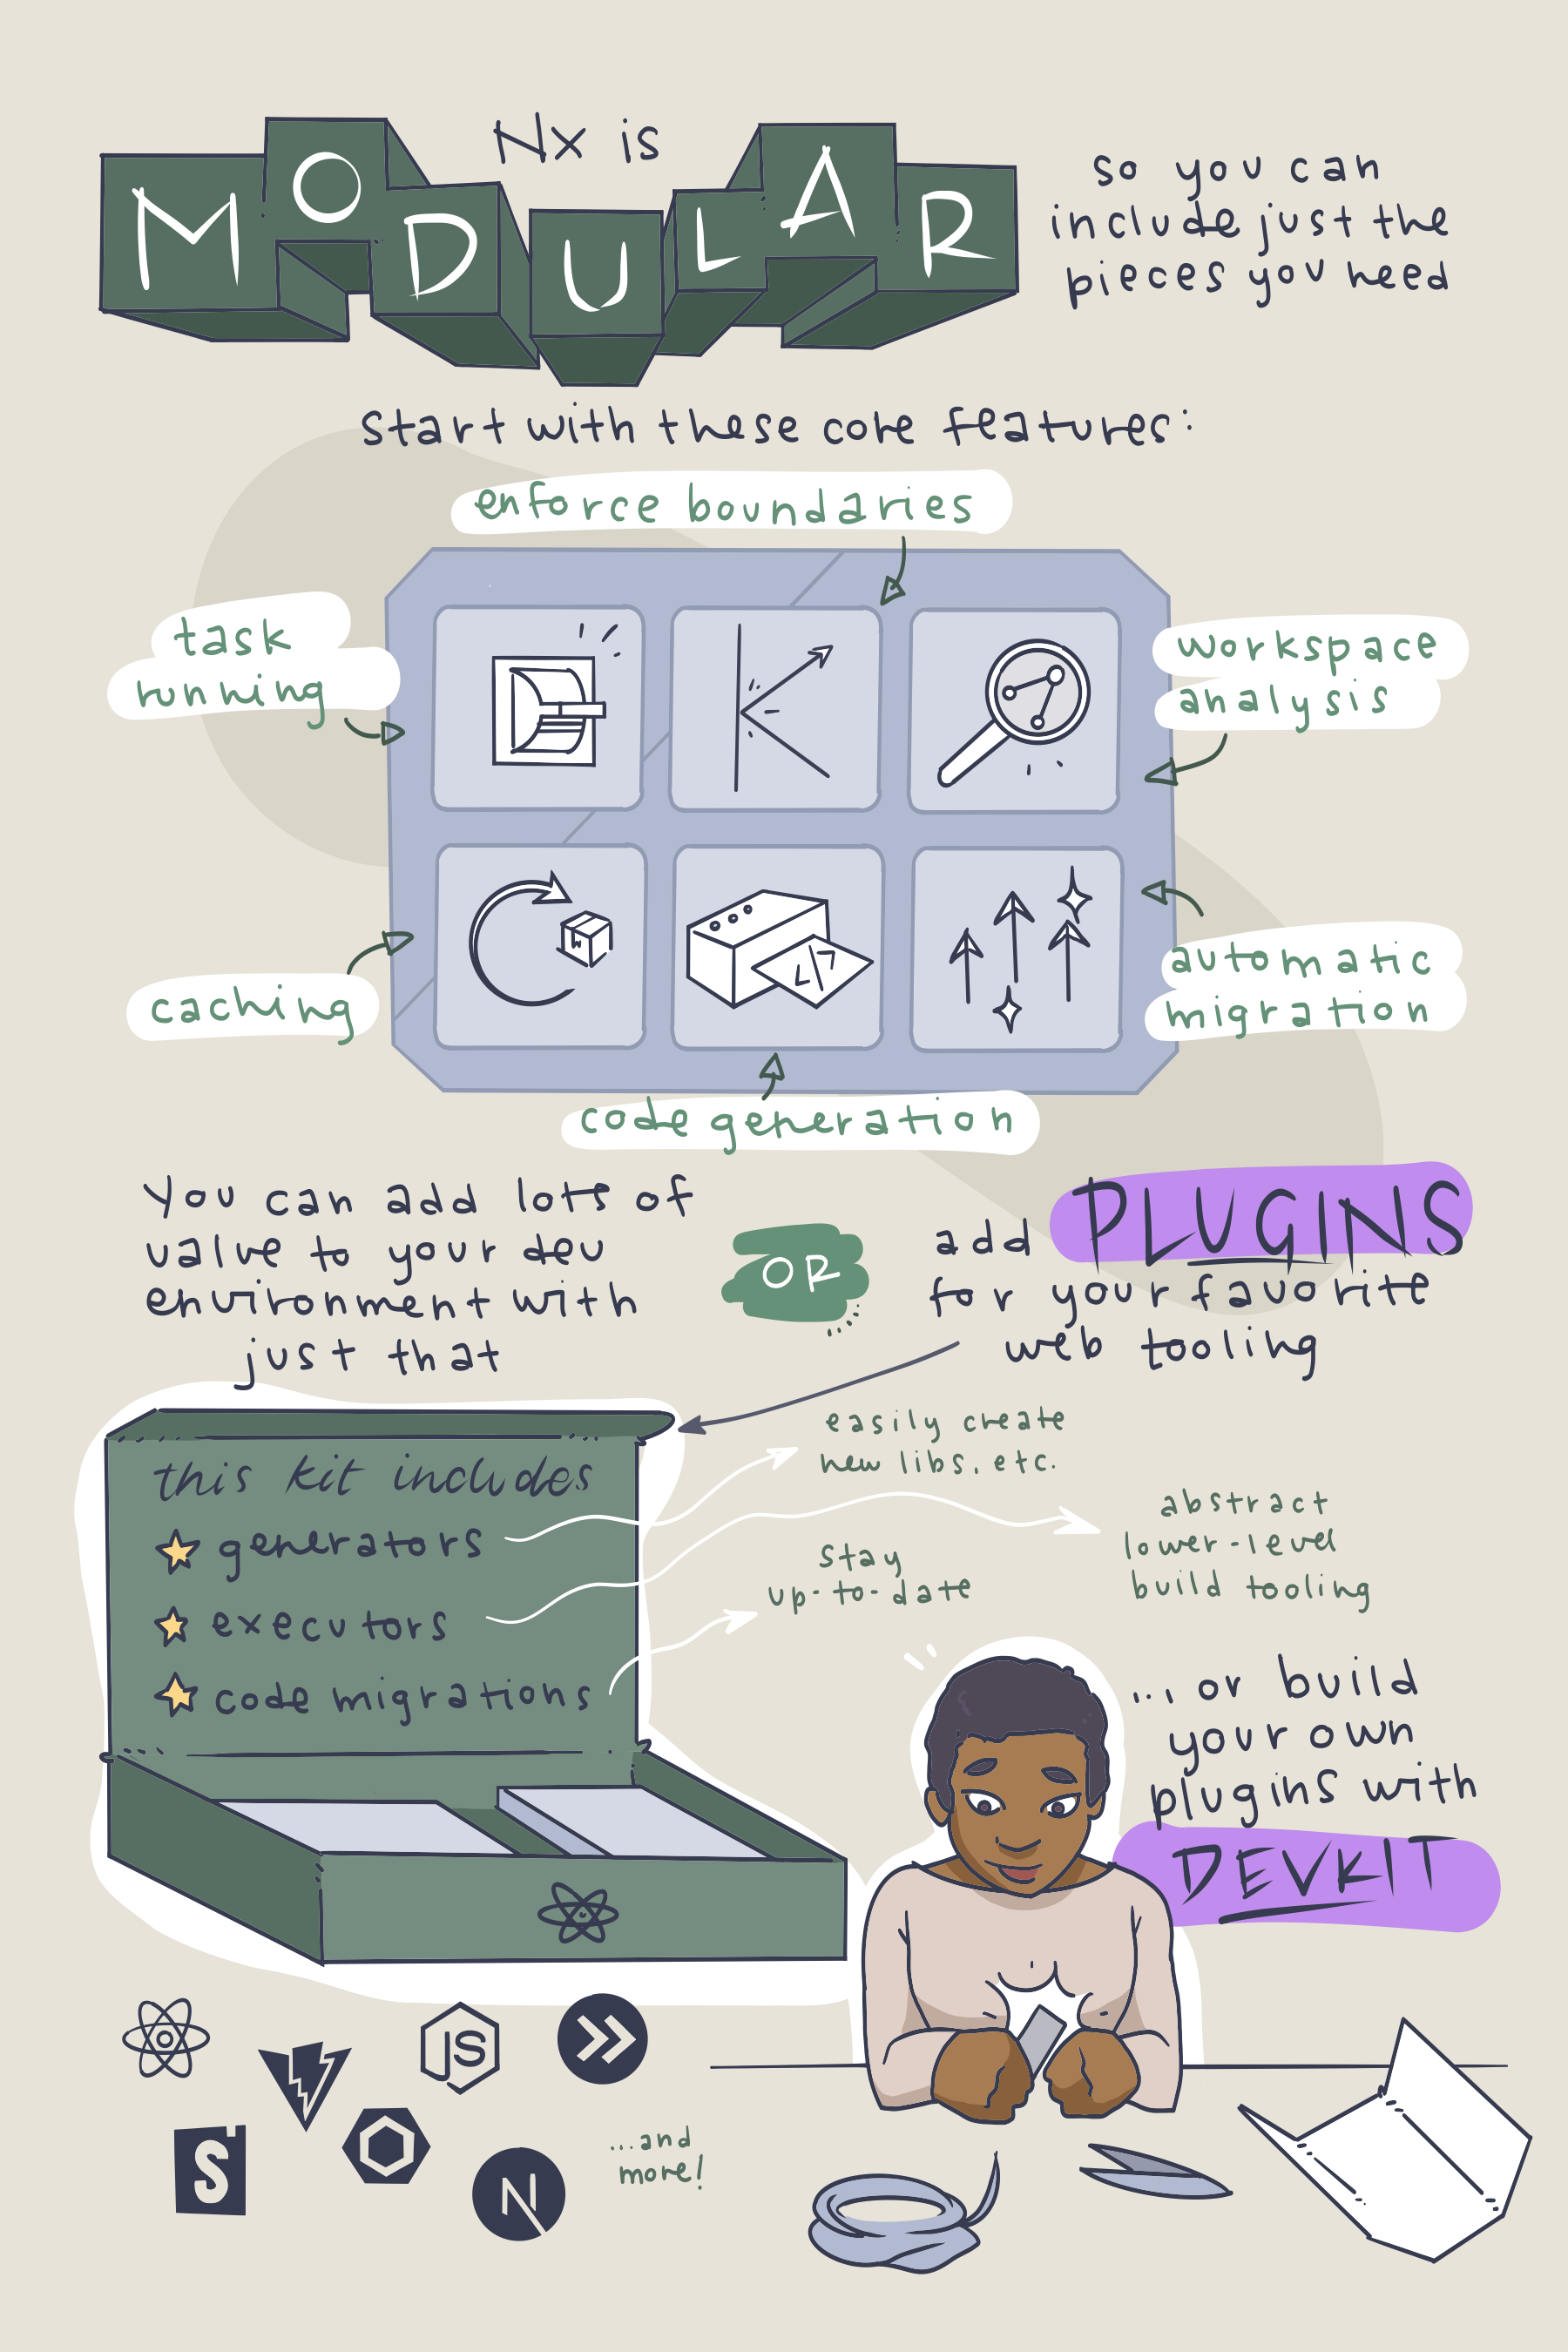 Nx is
MODULAR
so you can
include just the
pieces you need
start with these core features:
enforce boundaries
task
running
workspace
analysis
caching
automatic
migration
code generation
You can add lots of
value to your dev
environment with
just that
OR
add PLUGINS
for your favorite
web tooling
this kit includes
generators
executors
code migrations
easily create
new libs, etc.
abstract
lower-level
build tooling
stay
up-to-date
... or build
your own
plugins with
DEVKIT
JS
S
N
...and
more!